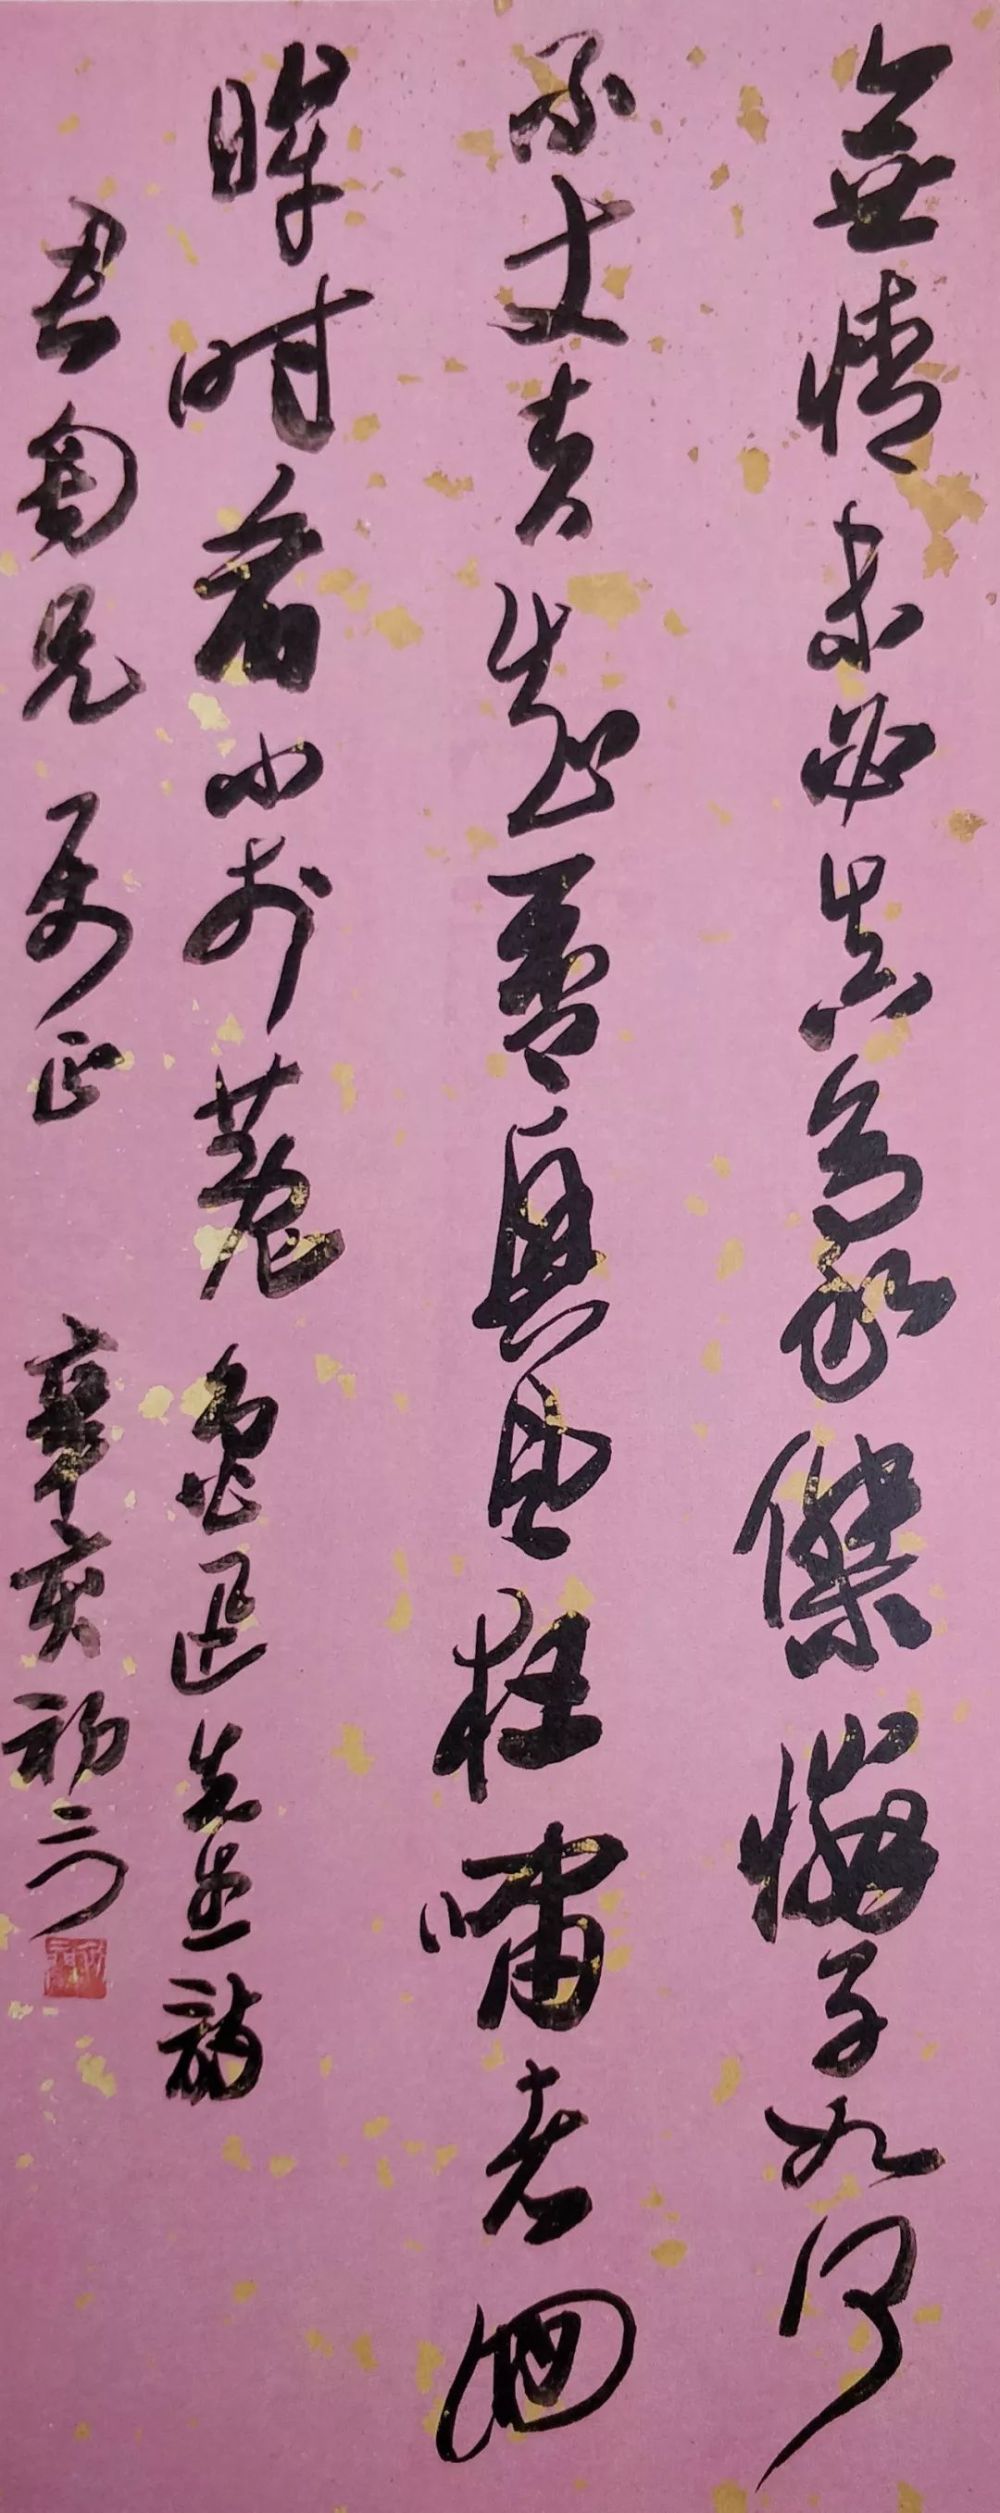 無情未必真豪傑憐子如何
不丈夫知否興風狂嘯者回
眸時看小於菟魯迅先生詩
君匋兄属正